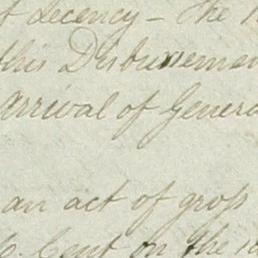 of Decency – the
this Disbursemen
Arrival of Genera
an act of gross
Cent on the